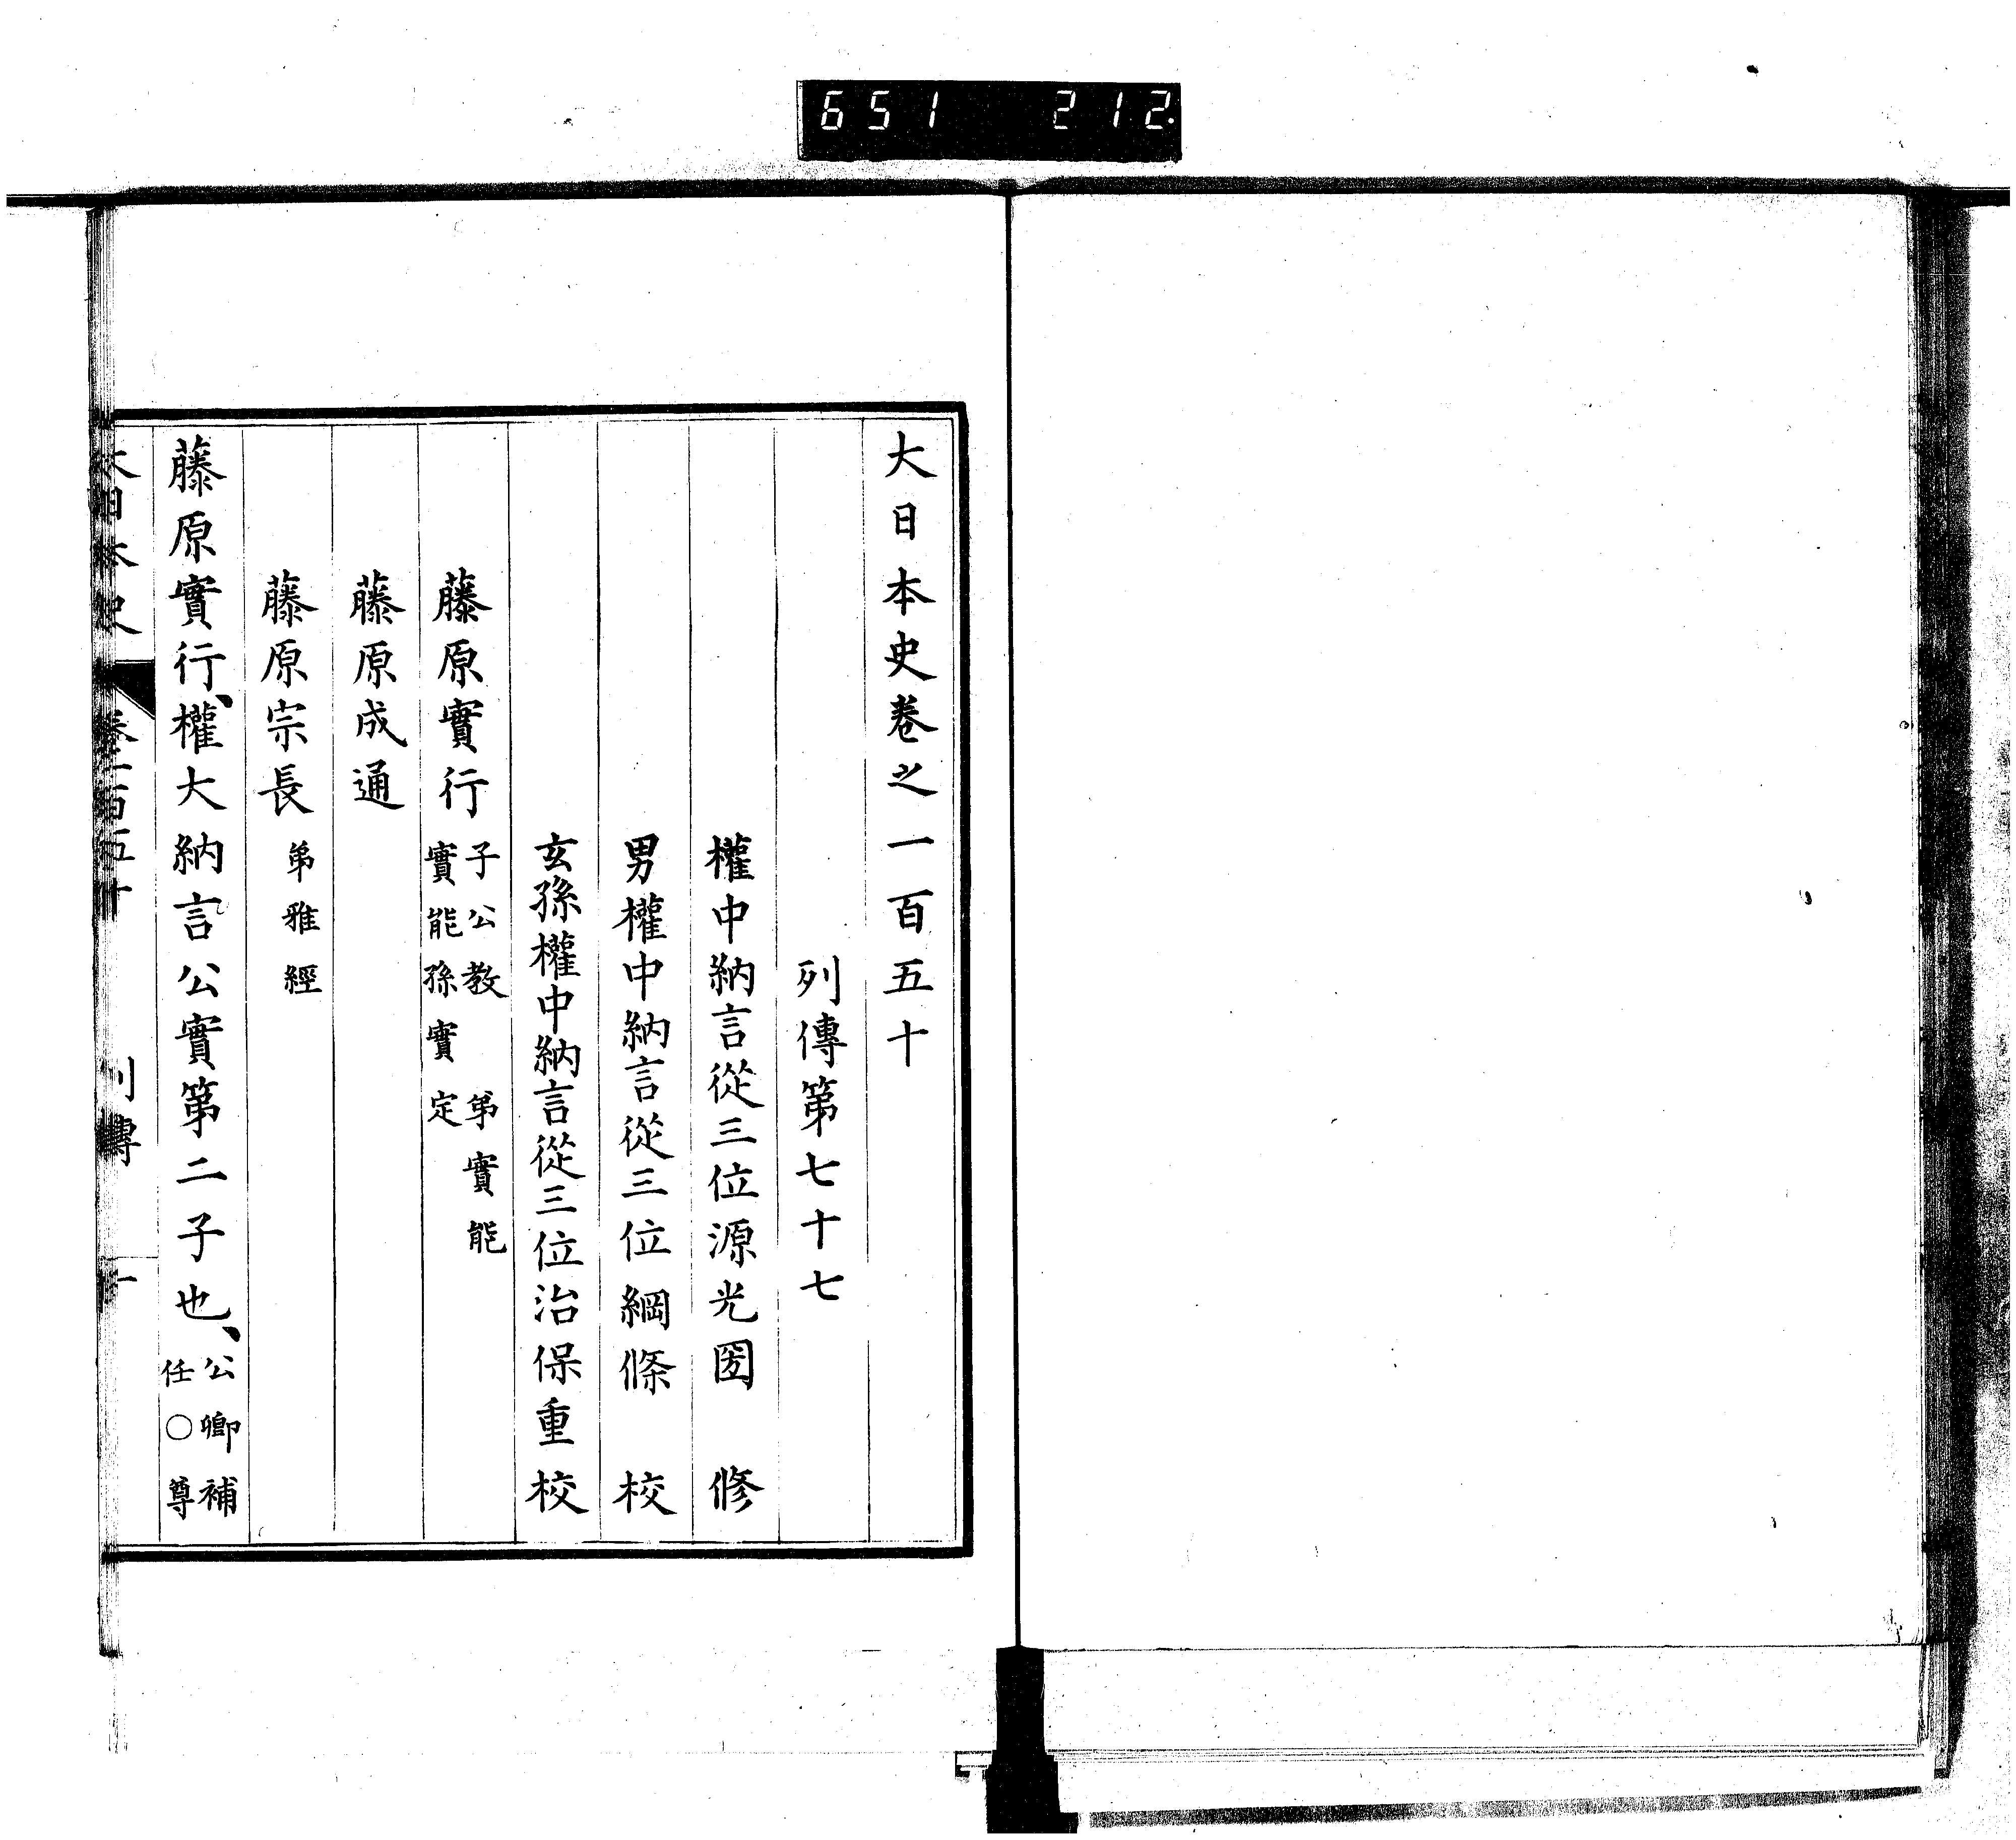 651 212.
大日本史卷之一百五十
列傳第七十七
權中納言從三位源光圀 修
男權中納言從三位綱條 校
玄孫權中納言從三位治保重校
藤原實行 子公教 弟實能 實能孫實定
藤原成通
藤原宗長 弟雅經
藤原實行、權大納言公實第二子也、公卿補任○尊
大日本史 卷一百五十 列傳 一